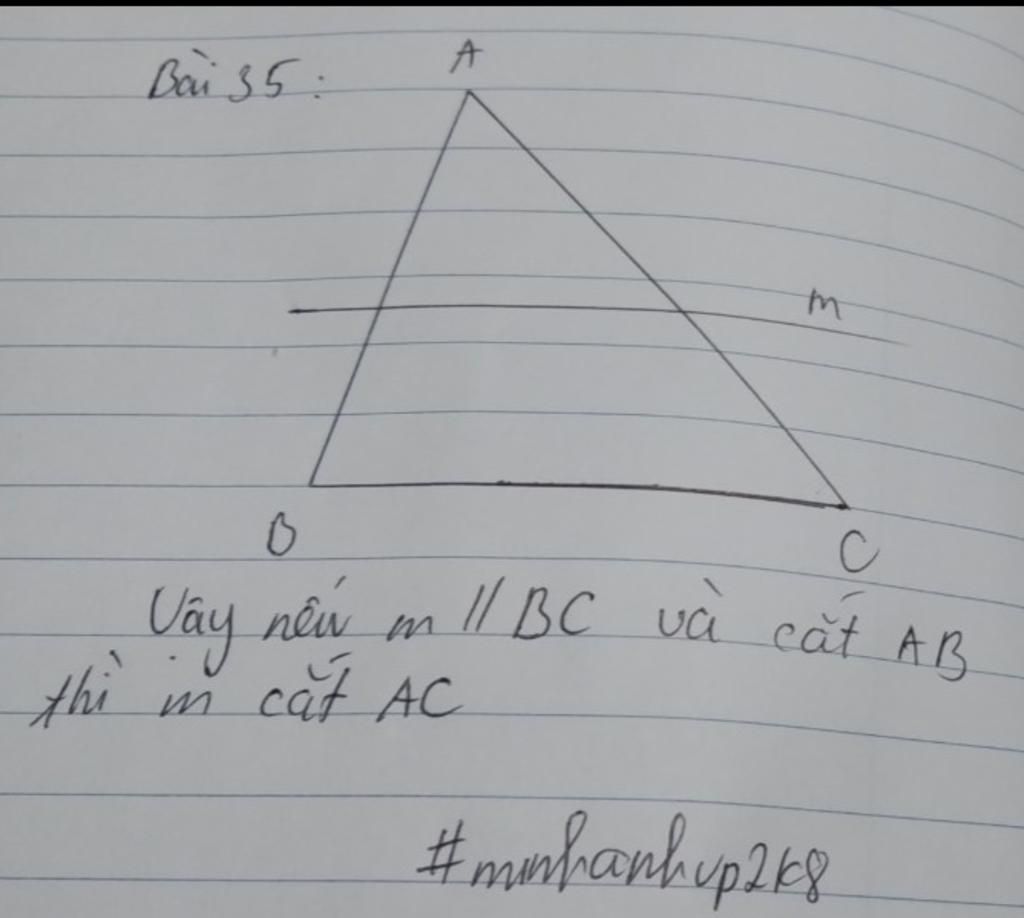 Bài 35:
A
m
B
C
Vậy nếu m // BC và cắt AB
thì m cắt AC
#minhanhvp2k8